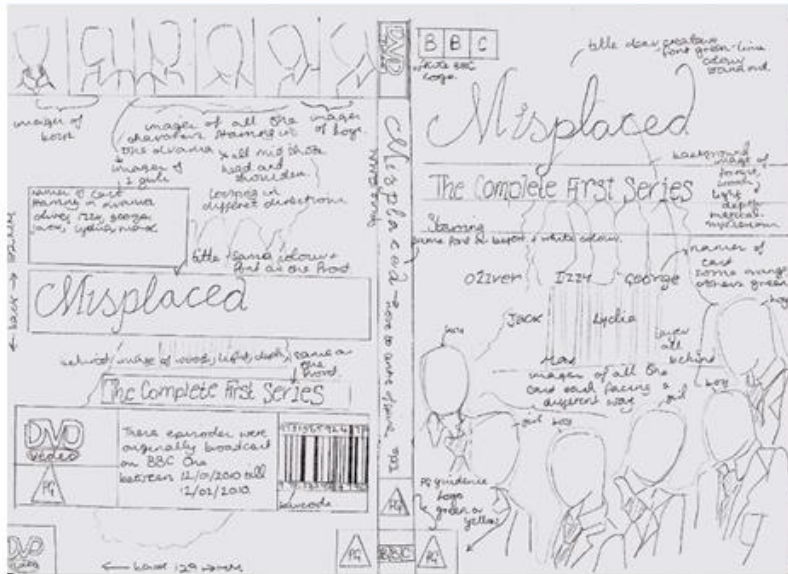 images of
boys
images of all the
characters starring in
the drama
images of
2 girls
images
of boys.
all mid shots
head and
shoulders
looking in
different directions
names of cast
starring in drama
oliver, izzy, george
jack, lydia, max
title same colour +
font as the front
Misplaced
behind, image of wood, light, dark, same as
the front
The Complete First Series
DVD
VIDEO
PG
These episodes were
originally broadcast
on BBC One
between 12/01/2010 till
12/02/2010.
barcode
DVD
video
PG
← back 129
← back →
DVD
Misplaced
name of
spine
PG
BBC
BBC
white BBC
logo
title clear creative
font green-lime
colour
stand out.
Misplaced
background
image of
forest,
wood,
light
depth
The Complete First Series
Starring
same font as before + white colour.
names of
cast
some orange
others green
Oliver Izzy George
Jack Lydia
Max
layer
all
behind
images of all the
cast each facing a
different way
boy
boy
boy
girl
girl
boy
PG guidance
logo
green or
yellow
PG